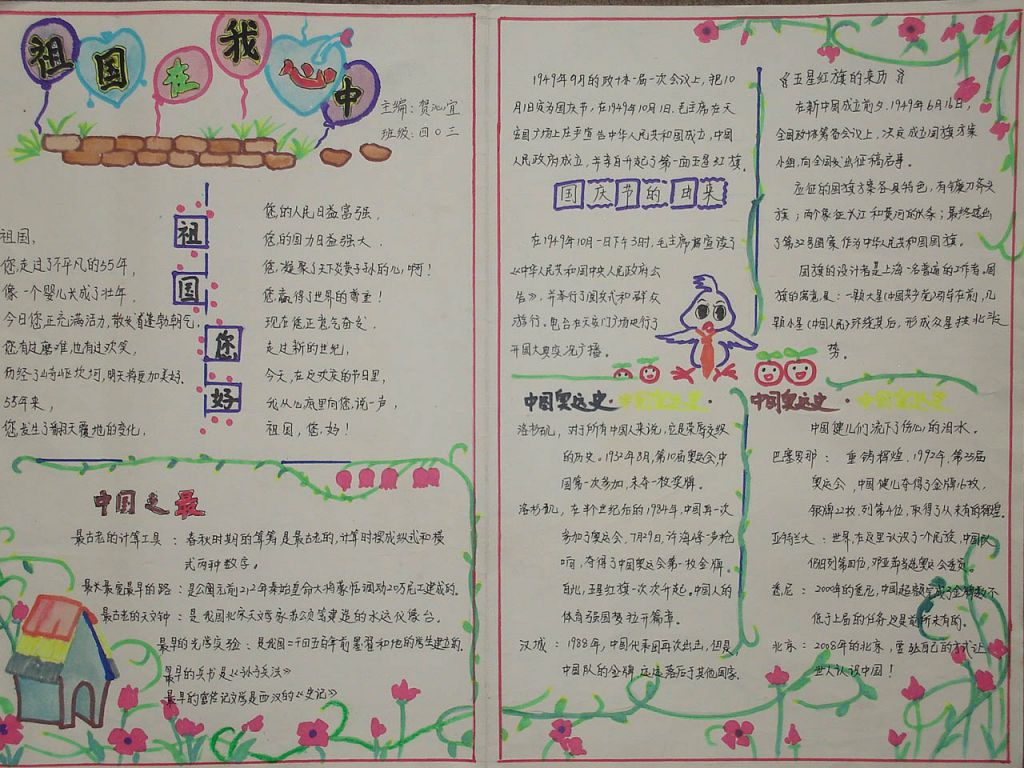 祖国在我心中
主编：贺沁宜
班级：四〇三
祖国您好
祖国，
您走过了不平凡的55年，
像一个婴儿长成了壮年，
今日您正充满活力，散发着蓬勃朝气，
您有过磨难，也有过欢笑，
历经了崎岖坎坷，明天将更加美好。
55年来，
您发生了翻天覆地的变化，
您的人民日益富强，
您的国力日益强大，
您，凝聚了天下炎黄子孙的心，啊！
您赢得了世界的尊重！
现在您正意气奋发，
走过新的世纪，
今天，在这欢庆的节日里，
我从心底里向您，说一声，
祖国，您，好！
中国之最
最古老的计算工具：春秋时期的算筹是最古老的，计算时摆成纵式和横
式两种数字。
最长最宽最早的路：是公元前212年秦始皇命大将蒙恬调动20万民工建成的。
最古老的天文钟：是我国北宋天文学家苏公等建造的水运仪像台。
最早的光学实验：是我国二千四五百年前墨翟和他的学生建立的。
最早的兵书是《孙子兵法》
最早的富传记文学是西汉的《史记》
1949年9月的政协一届一次会议上，把10
月1日定为国庆节，在1949年10月1日，毛主席在天
安门广场上庄严宣告中华人民共和国成立，中国
人民政府成立，并亲自升起了第一面五星红旗。
国庆节的由来
在1949年10月一日下午3时，毛主席宣读了
《中华人民共和国中央人民政府公
告》，并举行了阅兵式和群众
游行。电台在天安门广场进行了
开国大典实况广播。
五星红旗的来历
在新中国成立前夕，1949年6月16日，
全国政协筹备会议上，决定成立国旗方案
小组，向全国发出征稿启事。
应征的国旗方案各具特色，有镰刀斧头
旗；两个象征长江和黄河的长条；最终选出
了第32号图案作为中华人民共和国国旗。
国旗的设计者是上海一名普通的工作者。国
旗的寓意是：一颗大星（中国共产党）引导在前，几
颗小星（中国人民）环绕其后，形成众星拱北斗之
势。
中国奥运史·中国奥运史·中国奥运史·中国奥运史
洛杉矶，对于所有中国人来说，它是荣辱交织
的历史。1932年8月，第10届奥运会，中
国第一次参加，未夺一枚奖牌。
洛杉矶，在半个世纪后的1984年，中国再一次
参加了奥运会，7月29日，许海峰一声枪
响，夺得了中国奥运会第一枚金牌。
自此，五星红旗一次次升起。中国人的
体育强国梦拉开篇章。
汉城：1988年，中国代表团再次出击，但是，
中国队的金牌远远落后于其他国家。
中国健儿们流下了伤心的泪水。
巴塞罗那：重铸辉煌，1992年，第25届
奥运会，中国健儿夺得了金牌16枚，
银牌22枚，列第4位，取得了从未有的辉煌。
亚特兰大：世界，在这里认识了个民族，中国队
仍旧列第四位，邓亚萍当选奥运会委员。
悉尼：2000年的悉尼，中国超额完成了金牌数不
低于上届的任务，这是前所未有的。
北京：2008年的北京，要以自己的方式让
世人认识中国！